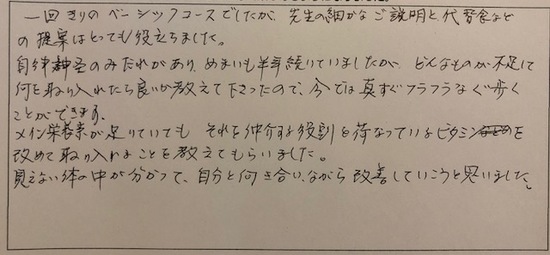 一回きりのベーシックコースでしたが、先生の細かなご説明と代替食など
の提案はとっても役立ちました。
自律神圣のみだれがあり、めまいも半年続いていましたが、どんなものが不足して
何を取り入れたら良いか教えて下さったので、今では真すぐフラフラなくゞ歩く
ことができます。
メイン栄養素が足りていても それを仲介する役割を荷なっているビタミンを
改めて取り入れることを教えてもらいました。
見えない体の中が分かって、自分と向き合いながら改善していこうと思いました。